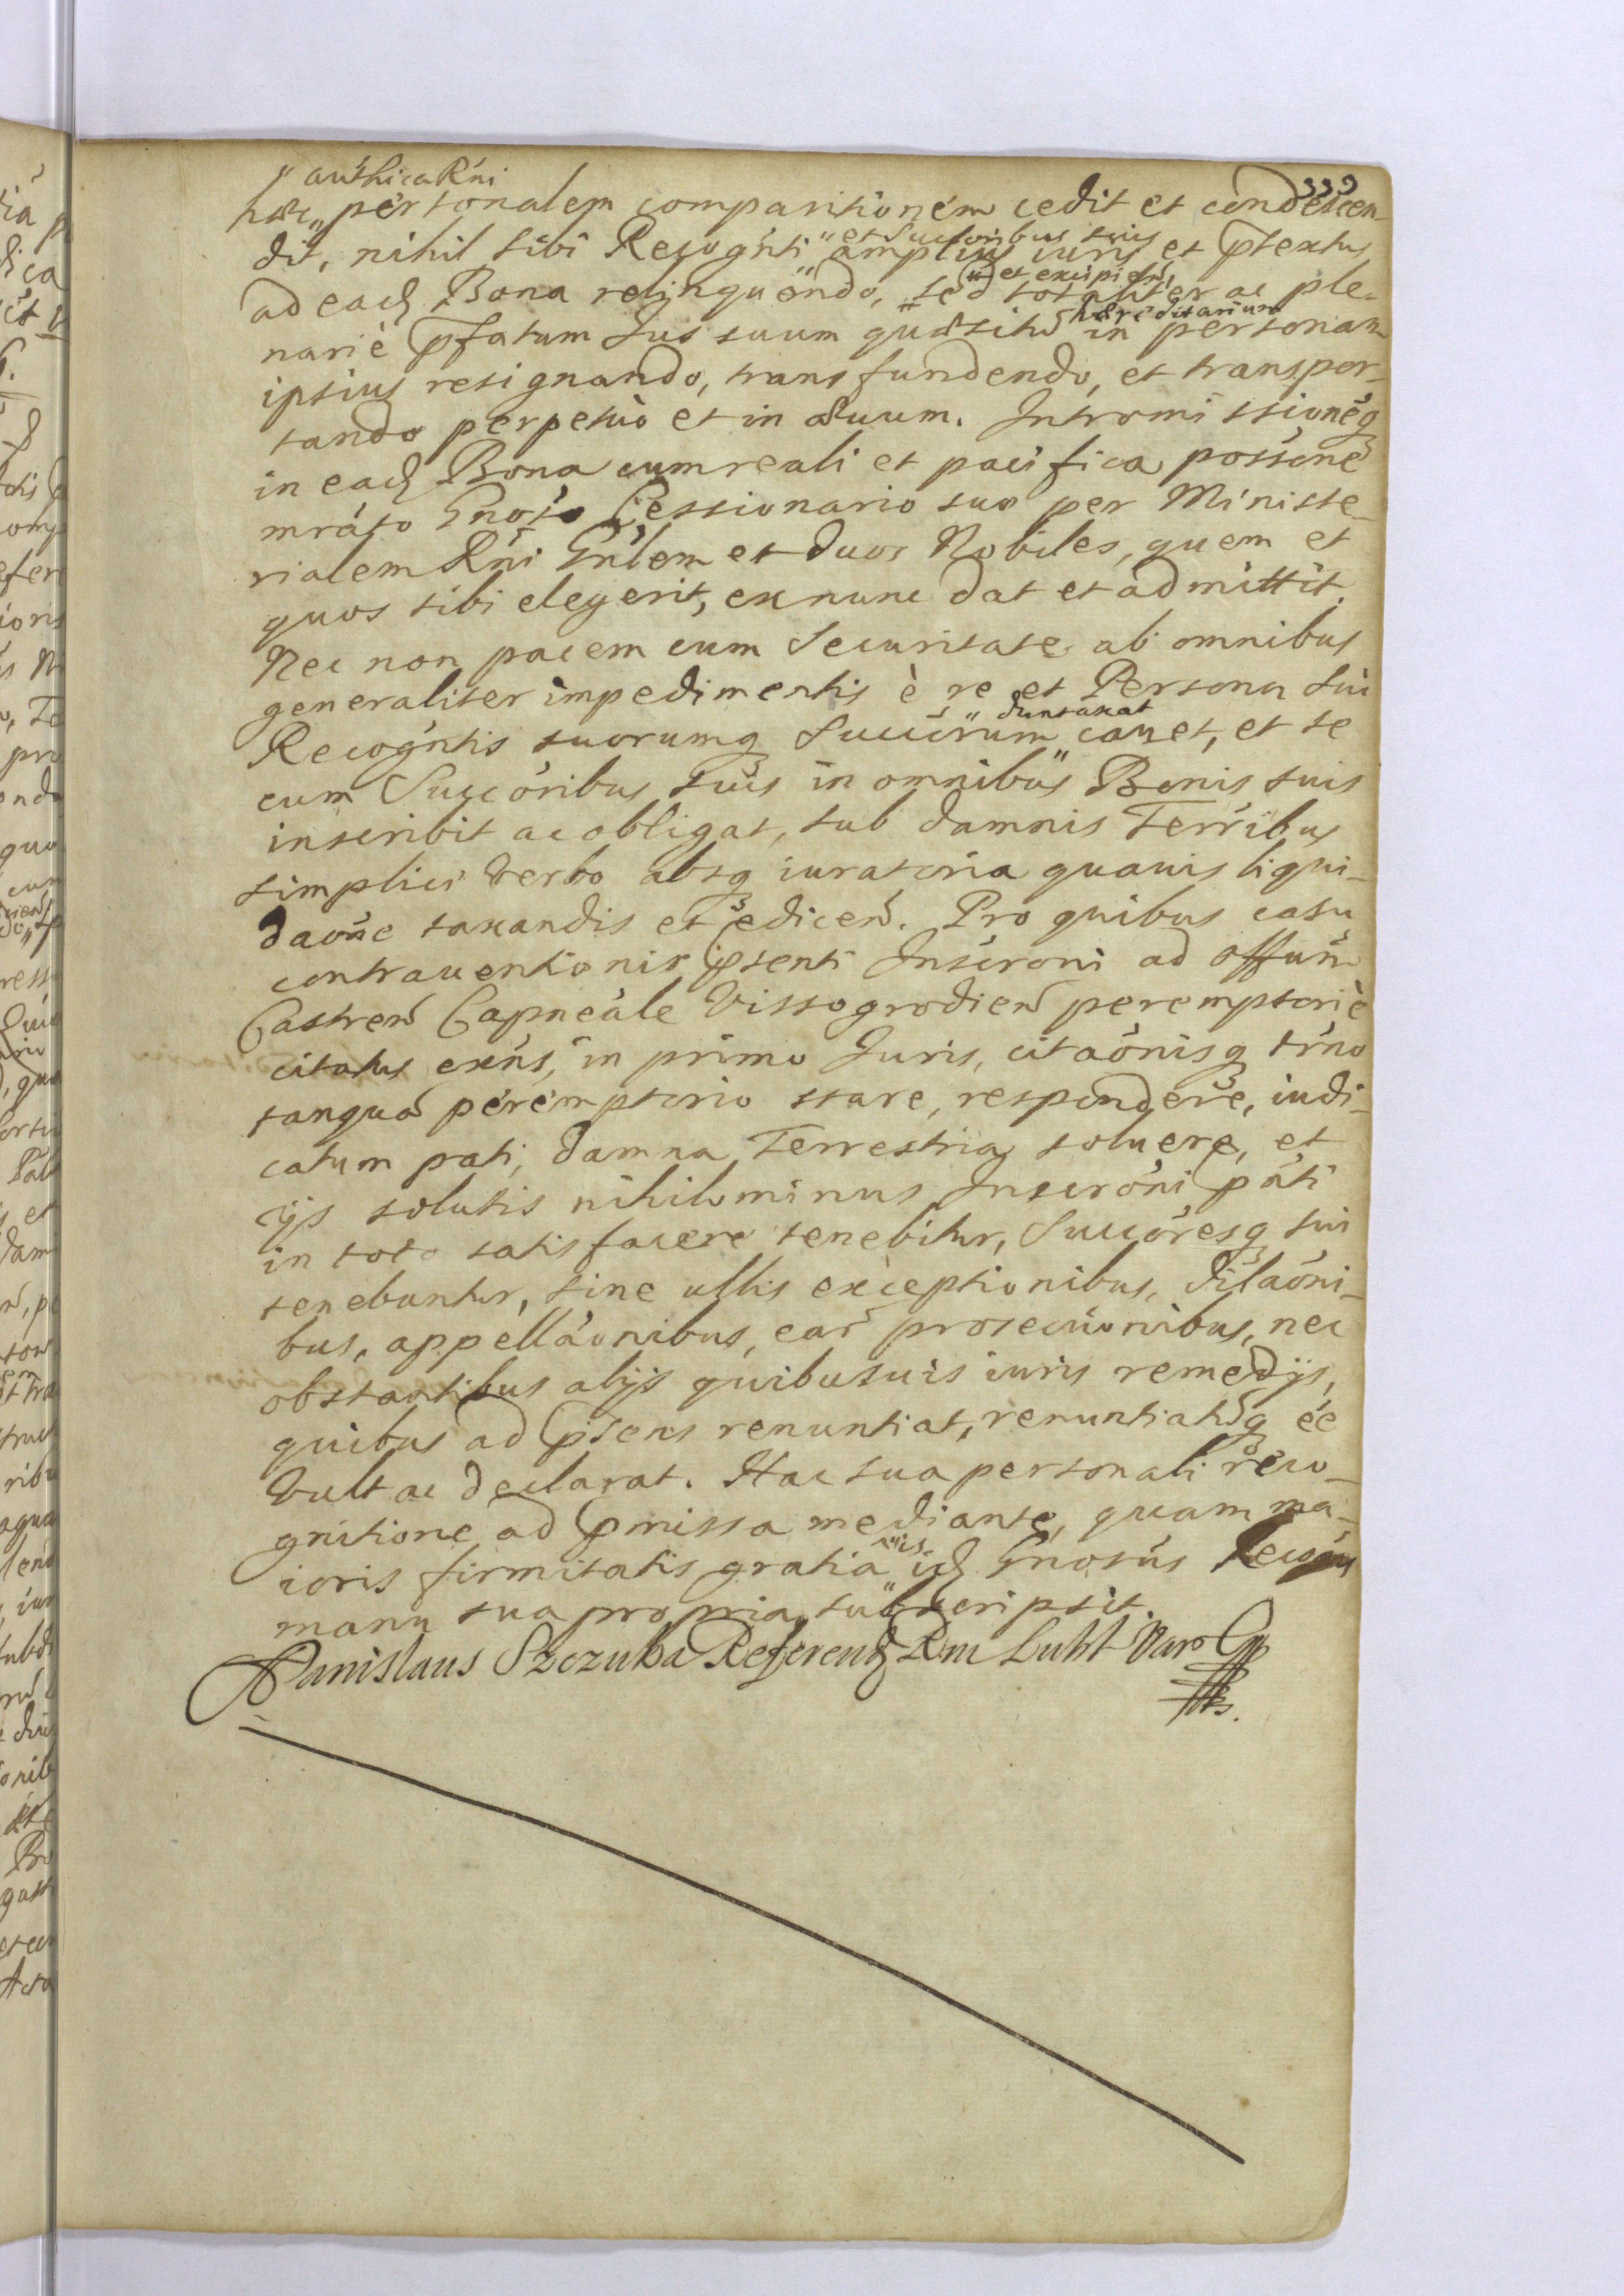 authica Rńi
339
hăc personalem comparitionem cedit et condescen-
et Succoribus suis
dit, nihil sibi Recogńti amplius iuris et ptextus
et excipiend,
ad ead Bona relinquendo, sed totaliter ac ple-
hæreditarium
narie pfatum Jus suum quæsitū in personam
ipsius resignando, transfundendo, et transpor-
tando perpetuò et in æuum. Intromissioneq
in ead Bona cum reali et pacifica possone
mrato Gnoso Cessionario suo per Ministe-
rialem Rńi Gnlem et duos Nobiles, quem et
quos sibi elegerit, ex nunc dat et admittit.
Nec non pacem cum Securitate ab omnibus
generaliter impedimentis è re et Persona sui
duntaxat
Recogńtis suorumq Succorum cauet, et se
cum Succoribus suis in omnibus Bonis suis
inscribit ac obligat, sub damnis Terribus
simplici Verbo absq iuratoria quauis liqui-
daone taxandis et edicen. Pro quibus casu
contrauentionis psenti Inscroni ad Offum
Castren Capneale Vissogrodien peremptoriè
citatus exns, in primo Juris, citaonisq trno
tanquā peremptorio stare, respondere, iudi-
catum pati, damna Terrestria soluere, et
ijs solutis nihilominus Inscroni pnti
in toto satisfacere tenebitur, Succoresq sui
tenebuntur, sine ullis exceptionibus, dilaoni-
bus, appellaonibus, ear prosecuionibus, nec
obstantibus alijs quibusuis iuris remedijs,
quibus ad psens renuntiat, renuntiatūq ee
Vult ac declarat. Hac sua personali reco-
gnitione ad pmissa mediante, quam ma-
ioris firmitatis gratia id Gnosus Recogns
manu sua propria subscripsit.
Stanislaus Szczuka Referend Rni Subst Vars Cap